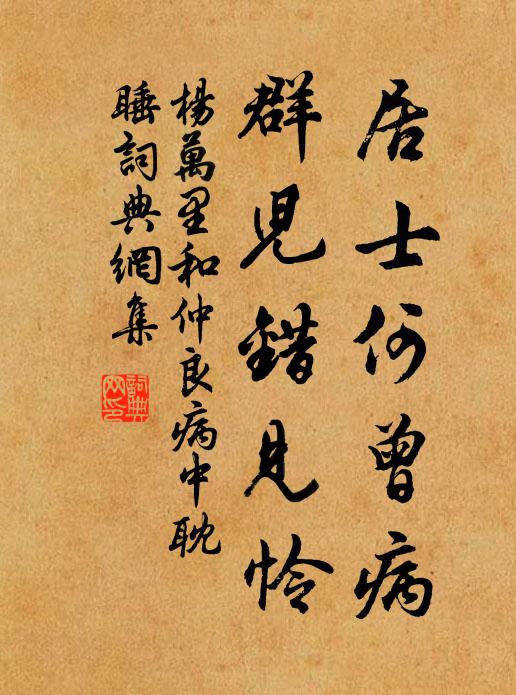 居士何曾病
群児錯見怜
楊萬里和仲良病中耽
睡詞典網集
詞典
网印